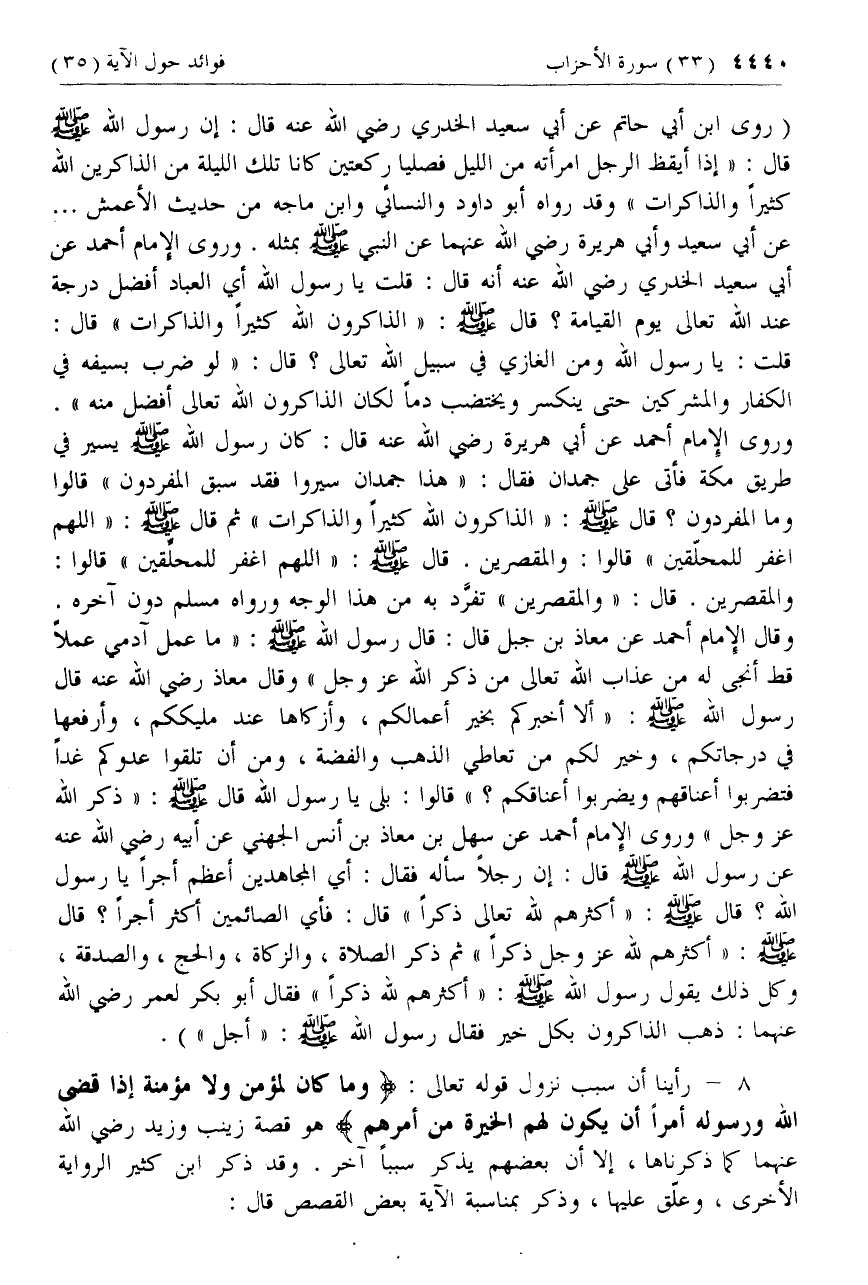 ٤٤٤٠ (٣٣) سورة الأحزاب فوائد حول الآية (٣٥)
( روى ابن أبي حاتم عن أبي سعيد الخدري رضي الله عنه قال : إن رسول الله ﷺ
قال : « إذا أيقظ الرجل امرأته من الليل فصليا ركعتين كانا تلك الليلة من الذاكرين الله
كثيراً والذاكرات » وقد رواه أبو داود والنسائي وابن ماجه من حديث الأعمش ...
عن أبي سعيد وأبي هريرة رضي الله عنهما عن النبي ﷺ بمثله . وروى الإمام أحمد عن
أبي سعيد الخدري رضي الله عنه أنه قال : قلت يا رسول الله أي العباد أفضل درجة
عند الله تعالى يوم القيامة ؟ قال ﷺ : « الذاكرون الله كثيراً والذاكرات » قال :
قلت : يا رسول الله ومن الغازي في سبيل الله تعالى ؟ قال : « لو ضرب بسيفه في
الكفار والمشركين حتى ينكسر ويختضب دماً لكان الذاكرون الله تعالى أفضل منه » .
وروى الإمام أحمد عن أبي هريرة رضي الله عنه قال : كان رسول الله ﷺ يسير في
طريق مكة فأتى على جمدان فقال : « هذا جمدان سيروا فقد سبق المفردون » قالوا
وما المفردون ؟ قال ﷺ : « الذاكرون الله كثيراً والذاكرات » ثم قال ﷺ : « اللهم
اغفر للمحلّقين » قالوا : والمقصرين . قال ﷺ : « اللهم اغفر للمحلّقين » قالوا :
والمقصرين . قال : « والمقصرين » تفرَّد به من هذا الوجه ورواه مسلم دون آخره .
وقال الإمام أحمد عن معاذ بن جبل قال : قال رسول الله ﷺ : « ما عمل آدمي عملاً
قط أنجى له من عذاب الله تعالى من ذكر الله عز وجل » وقال معاذ رضي الله عنه قال
رسول الله ﷺ : « ألا أخبركم بخير أعمالكم ، وأزكاها عند مليككم ، وأرفعها
في درجاتكم ، وخير لكم من تعاطي الذهب والفضة ، ومن أن تلقوا عدوكم غداً
فتضربوا أعناقهم ويضربوا أعناقكم ؟ » قالوا : بلى يا رسول الله قال ﷺ : « ذكر الله
عز وجل » وروى الإمام أحمد عن سهل بن معاذ بن أنس الجهني عن أبيه رضي الله عنه
عن رسول الله ﷺ قال : إن رجلاً سأله فقال : أي المجاهدين أعظم أجراً يا رسول
الله ؟ قال ﷺ : « أكثرهم لله تعالى ذكراً » قال : فأي الصائمين أكثر أجراً ؟ قال
ﷺ : « أكثرهم لله عز وجل ذكراً » ثم ذكر الصلاة ، والزكاة ، والحج ، والصدقة ،
وكل ذلك يقول رسول الله ﷺ : « أكثرهم لله ذكراً » فقال أبو بكر لعمر رضي الله
عنهما : ذهب الذاكرون بكل خير فقال رسول الله ﷺ : « أجل » ) .
٨ – رأينا أن سبب نزول قوله تعالى : ﴿ وما كان لمؤمن ولا مؤمنة إذا قضى
الله ورسوله أمراً أن يكون لهم الخيرة من أمرهم ﴾ هو قصة زينب وزيد رضي الله
عنهما كما ذكرناها ، إلا أن بعضهم يذكر سبباً آخر . وقد ذكر ابن كثير الرواية
الأخرى ، وعلّق عليها ، وذكر بمناسبة الآية بعض القصص قال :